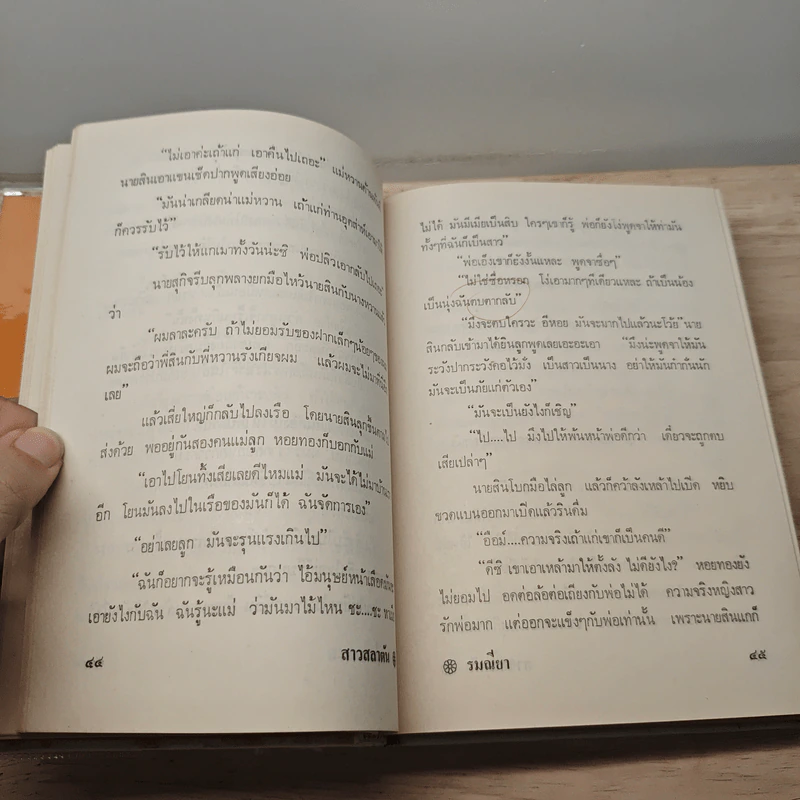 “ไม่เอาค่ะเถ้าแก่ เอาคืนไปเถอะ” แม่หวาน
นายสินเอาแขนเช็ดปากพูดเสียงอ่อย
“มันน่าเกลียดน่าแม่หวาน เถ้าแก่ท่านอุตส่าห์เอามาให้
ก็ควรรับไว้”
“รับไว้ให้แกเมาทั้งวันน่ะซิ พ่อปลิวเอากลับไป
นายสุกิจรีบลุกพลางยกมือไหว้นายสินกับนางหวานแล้ว
ว่า
“ผมลาละครับ ถ้าไม่ยอมรับของฝากเล็กๆน้อยๆของผม
ผมจะถือว่าพี่สินกับพี่หวานรังเกียจผม แล้วผมจะไม่มาที่นี่
เลย”
แล้วเสี่ยใหญ่ก็กลับไปลงเรือ โดยนายสินลุกขึ้น
ส่งด้วย พออยู่กันสองคนแม่ลูก หอยทองก็บอกกับแม่
“เอาไปโยนทิ้งเสียเลยดีไหมแม่ มันจะได้ไม่มาบ้าน
อีก โยนมันลงไปในเรือของมันก็ได้ ฉันจัดการเอง”
“อย่าเลยลูก มันจะรุนแรงเกินไป”
“ฉันก็อยากจะรู้เหมือนกันว่า ไอ้มนุษย์หน้าเลือด
เอายังไงกับฉัน ฉันรู้นะแม่ ว่ามันมาไม้ไหน ชะ....ชะ
๔๔ สาวสลาตัน
ไม่ได้ มันมีเมียเป็นสิบ ใครๆเขาก็รู้ พ่อก็ยังโง่พูดจาให้ท่ามัน
ทั้งๆที่ฉันก็เป็นสาว”
“พ่อเอ็งเขาก็ยังงั้นแหละ พูดจาซื่อๆ”
“ไม่ใช่ซื่อหรอก โง่เอามากๆทีเดียวแหละ ถ้าเป็นน้อง
เป็นนุ่งฉันตบตากลับ”
“มึงจะตบใครวะ อีหอย มันจะมากไปแล้วนะโว้ย” นาย
สินกลับเข้ามาได้ยินลูกพูดเลยเอะอะเอา “มึงน่ะพูดจาให้มัน
ระวังปากระวังคอไว้มั่ง เป็นสาวเป็นนาง อย่าให้มันก๋ากั่นนัก
มันจะเป็นภัยแก่ตัวเอง”
“มันจะเป็นยังไงก็เชิญ”
“ไป....ไป มึงไปให้พ้นหน้าพ่อดีกว่า เดี๋ยวจะถูกตบ
เสียเปล่าๆ”
นายสินโบกมือไล่ลูก แล้วก็คว้าลังเหล้าไปเปิด หยิบ
ขวดแบนออกมาเปิดแล้วรินดื่ม
“อือม์....ความจริงเถ้าแก่เขาก็เป็นคนดี”
“ดีซิ เขาเอาเหล้ามาให้ตั้งลัง ไม่ดียังไง?” หอยทองยัง
ไม่ยอมไป อดต่อล้อต่อเถียงกับพ่อไม่ได้ ความจริงหญิงสาว
รักพ่อมาก แต่ออกจะแข็งๆกับพ่อเท่านั้น เพราะนายสินแกก็
รมณียา ๔๕